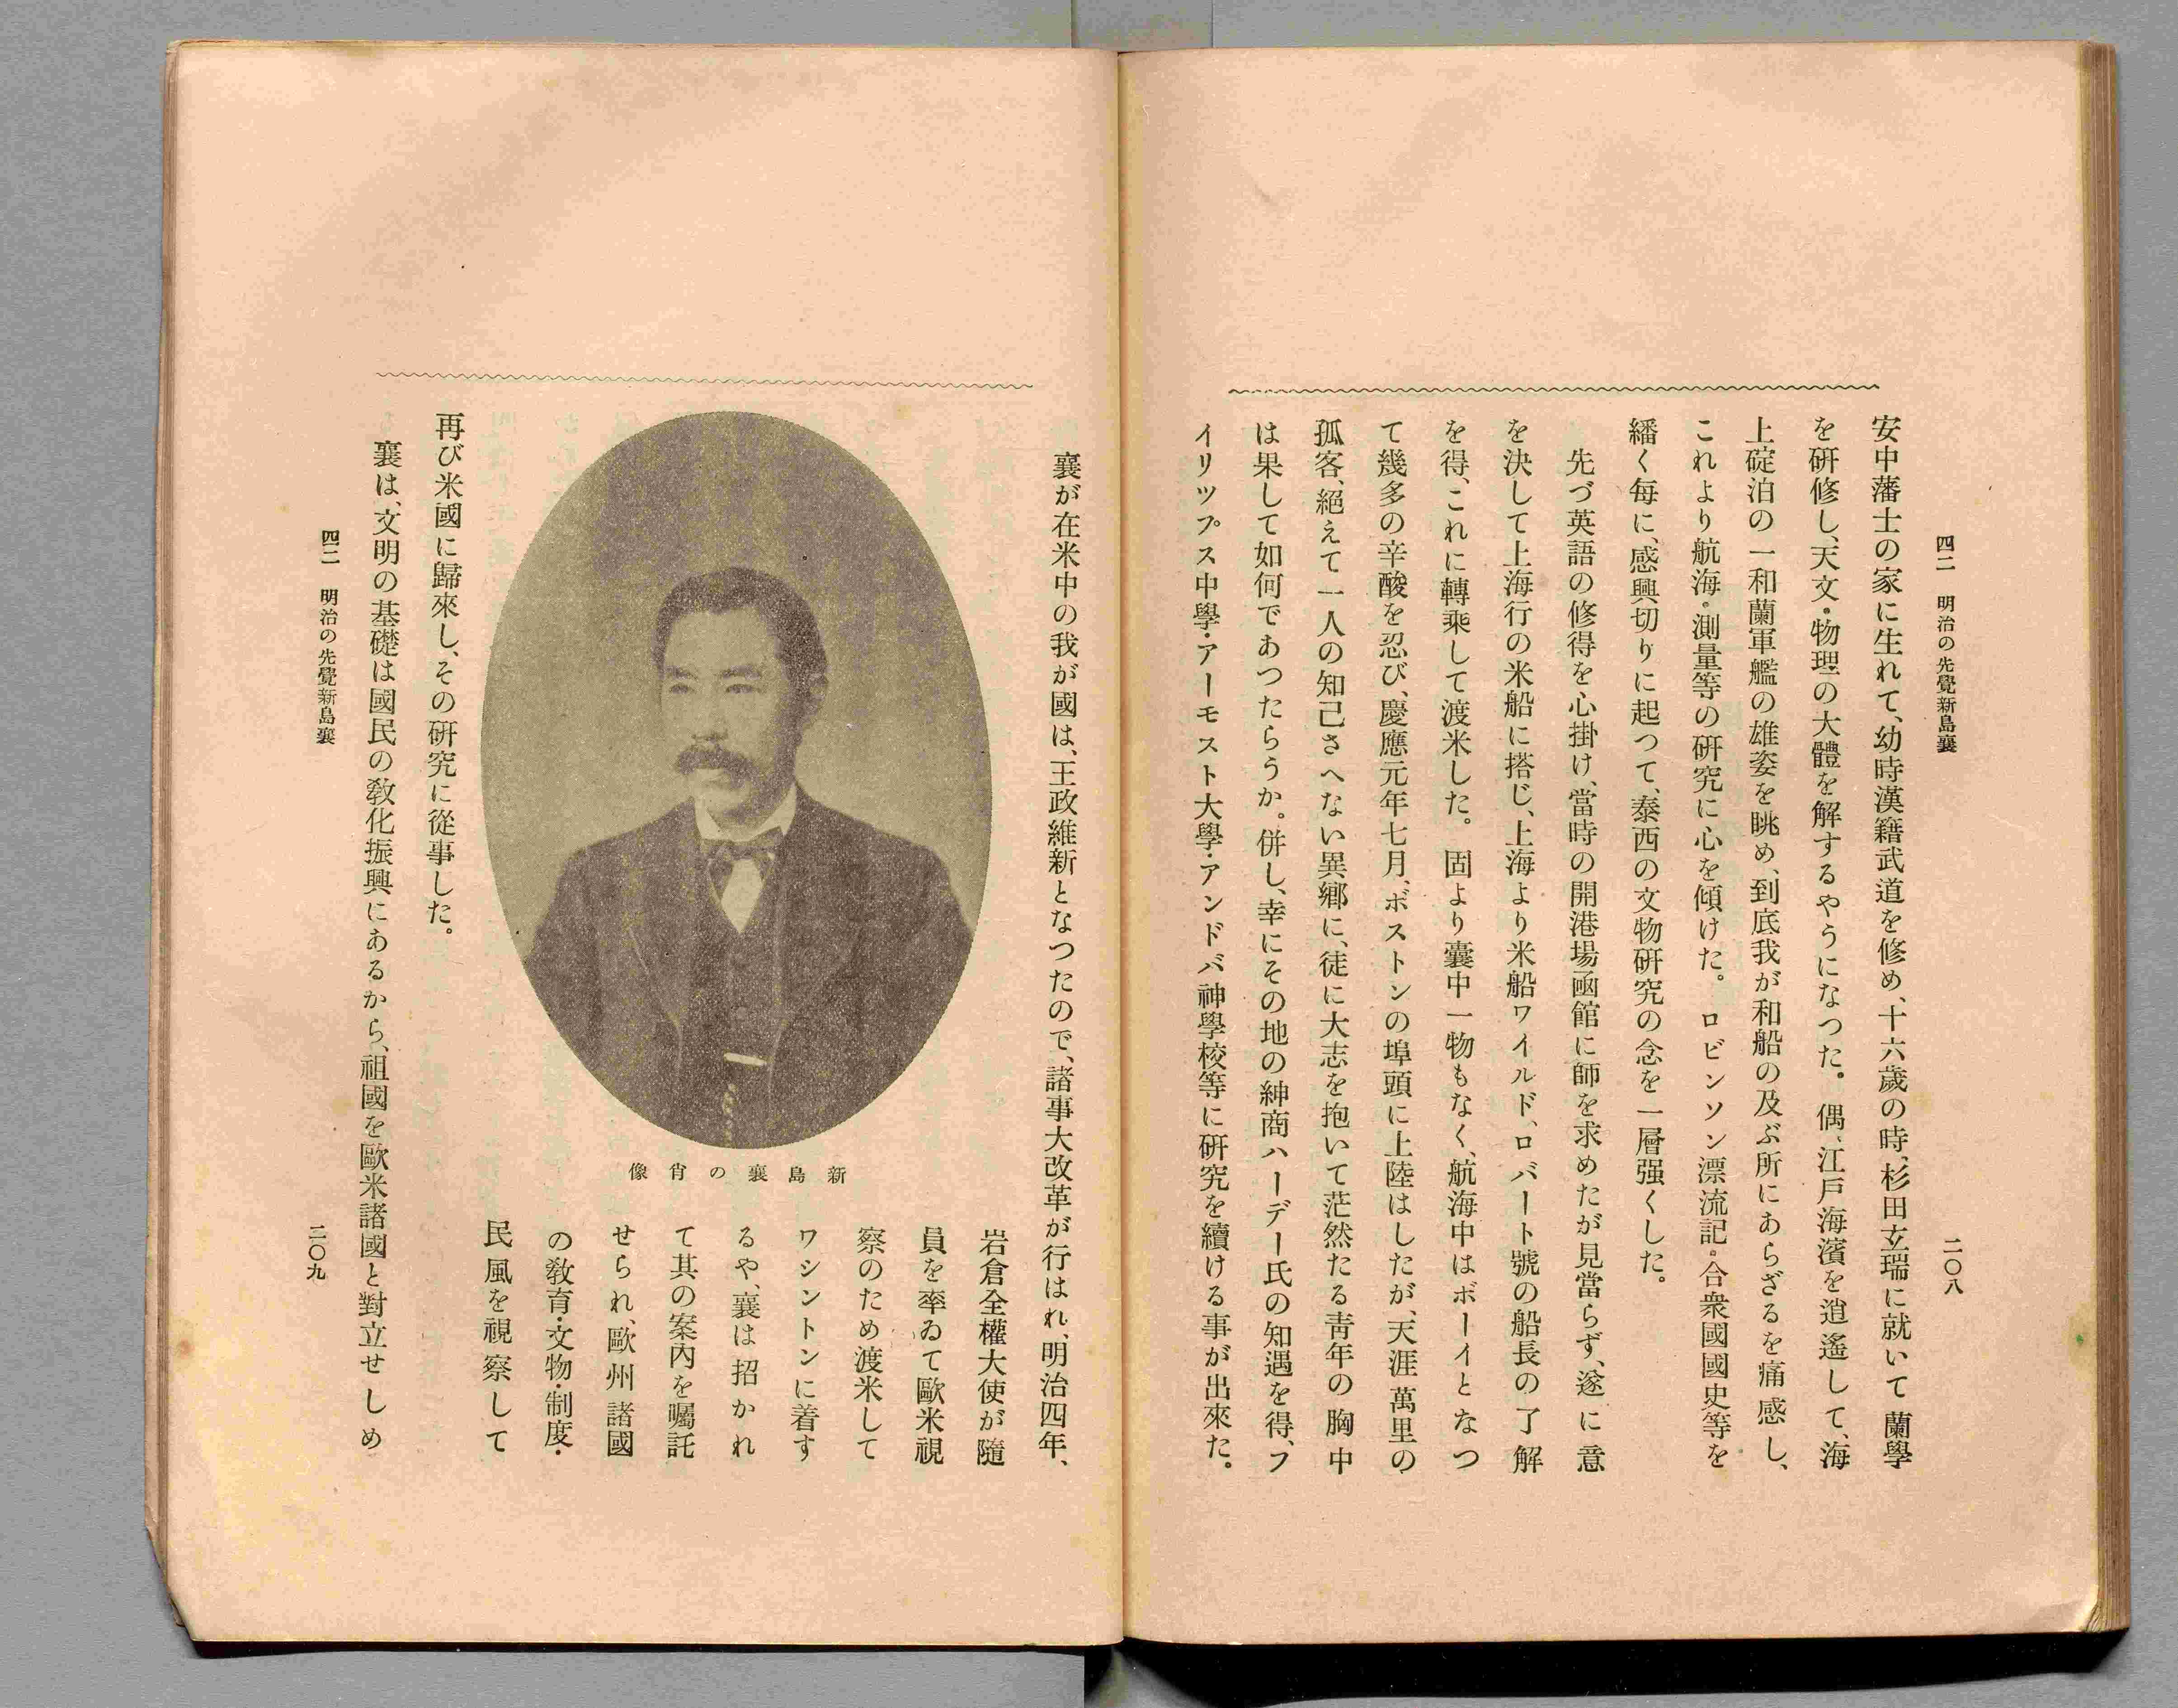 四二　明治の先覺新島襄
二〇八
安中藩士の家に生れて、幼時漢籍武道を修め、十六歲の時、杉田玄瑞に就いて蘭學
を硏修し、天文・物理の大體を解するやうになつた。偶、江戶海濱を逍遙して、海
上碇泊の一和蘭軍艦の雄姿を眺め、到底我が和船の及ぶ所にあらざるを痛感し、
これより航海・測量等の硏究に心を傾けた。ロビンソン漂流記・合衆國國史等を
繙く每に、感興切りに起つて、泰西の文物硏究の念を一層强くした。
先づ英語の修得を心掛け、當時の開港場凾館に師を求めたが見當らず、遂に意
を決して上海行の米船に搭じ、上海より米船ワイルド、ロバート號の船長の了解
を得、これに轉乘して渡米した。固より囊中一物もなく、航海中はボーイとなつ
て幾多の辛酸を忍び、慶應元年七月、ボストンの埠頭に上陸はしたが、天涯萬里の
孤客、絕えて一人の知己さへない異鄕に、徒に大志を抱いて茫然たる靑年の胸中
は果して如何であつたらうか。併し、幸にその地の紳商ハーデー氏の知遇を得、フ
イリツプス中學・アーモスト大學・アンドバ神學校等に硏究を續ける事が出來た。
襄が在米中の我が國は、王政維新となつたので、諸事大改革が行はれ、明治四年、
岩倉全權大使が隨
員を率ゐて歐米視
察のため渡米して
ワシントンに着す
るや、襄は招かれ
て其の案內を囑託
せられ、歐州諸國
の敎育・文物・制度・
民風を視察して
新島襄の肖像
再び米國に歸來し、その硏究に從事した。
襄は、文明の基礎は國民の敎化振興にあるから、祖國を歐米諸國と對立せしめ
四二　明治の先覺新島襄
二〇九